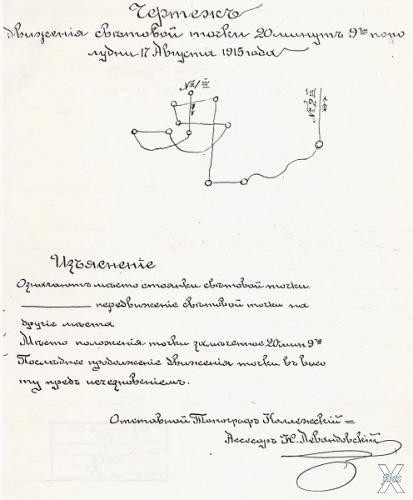 Чертежъ
движенія свѣтовой точки 20 минутъ 9го попо
лудни 17 Августа 1915 года
№1/III
№2/III
Изъясненіе
Означаютъ мѣсто стоянки свѣтовой точки
передвиженіе свѣтовой точки на
другіе мѣста
Мѣсто положенія точки замѣченное 20 мин 9го
Послѣднее продолженіе движенія точки въ высо
ту предъ исчезновеніемъ.
Отставной Топографъ Коллежскій =
Ассесоръ Н. Левандовскій